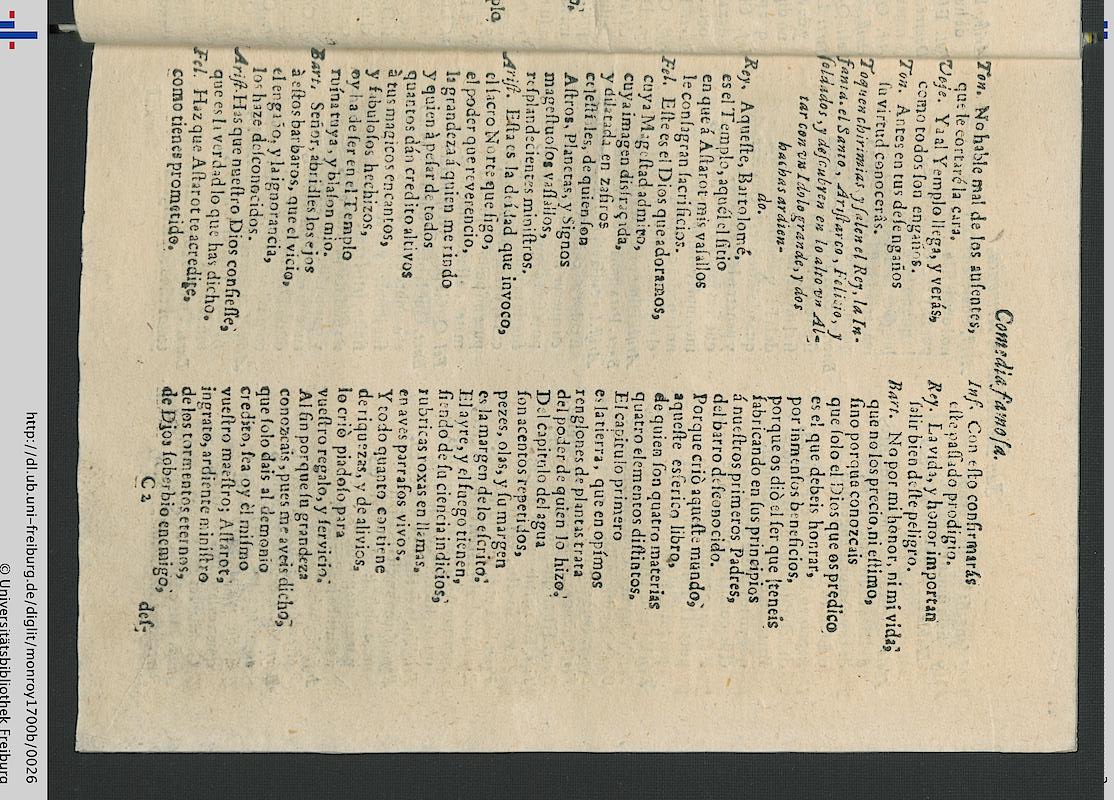 Comedia famosa.
Ton. No hable mal de los ausentes,
que le cortarè la cara.
Voge. Ya al Templo llega, y veràs,
como todos son engaños.
Ton. Antes en tus desengaños
su virtud conoceràs.
Toquen chirimias, y salen el Rey, la In-
fanta, el Santo, Aristarco, Felicio, y
soldados, y descubren en lo alto vn Al-
tar con vn Idolo grande, y dos
hachas ardien-
do.
Rey. Aqueste, Bartolomé,
es el Templo, aquel el sitio
en que à Astarot mis vasallos
le consagran sacrificios.
Fel. Este es el Dios que adoramos,
cuya Magestad admiro,
cuya imagen disfraçada,
y dilatada en zafiros
celestiales, de quien son
Astros, Planetas, y Signos
magestuosos vasallos,
resplandecientes ministros.
Arist. Esta es la deidad que invoco,
el sacro Norte que sigo,
el poder que reverencio,
la grandeza à quien me rindo
y quien à pesar de todos
quantos dàn credito altivos
à tus magicos encantos,
y fabulosos hechizos,
oy ha de ser en el Templo
ruìna tuya, y blason mio.
Bart. Señor, abridles los ojos
à estos barbaros, que el vicio,
el engaño, y la ignorancia,
los haze desconocidos.
Arist. Has que nuestro Dios confiesse,
que es la verdad lo que has dicho.
Fel. Haz que Astarot te acredite,
como tienes prometido.
Inf. Con esto confirmaràs
este passado prodigio.
Rey. La vida, y honor importan
salir bien deste peligro.
Bart. No por mi honor, ni mi vida,
que no los precio, ni estimo,
sino porque conozcais
que solo el Dios que os predico
es el que debeis honrar,
por inmensos beneficios,
porque os diò el ser que teneis
fabricando en sus principios
à nuestros primeros Padres,
del barro desconocido.
Porque criò aqueste mundo,
aqueste esferico libro,
de quien son quatro materias
quatro elementos distintos.
El capitulo primero
es la tierra, que en opimos
renglones de plantas trata
del poder de quien lo hizo.
Del capitulo del agua
son acentos repetidos,
pezes, olas, y su margen
es la margen de lo escrito.
El ayre, y el fuego tienen,
siendo de su ciencia indicios,
rubricas roxas en llamas,
en aves parrafos vivos.
Y todo quanto contiene
de riquezas, y de alivios,
lo criò piadoso para
vuestro regalo, y servicio.
Al fin porque su grandeza
conozcais, pues me aveis dicho,
que solo dais al demonio
credito, sea oy èl mismo
vuestro maestro; Astarot,
ingrato, ardiente ministro
de los tormentos eternos,
de Dios soberbio enemigo,
C2
des-
http://dl.ub.uni-freiburg.de/diglit/monroy1700b/0026
© Universitätsbibliothek Freiburg